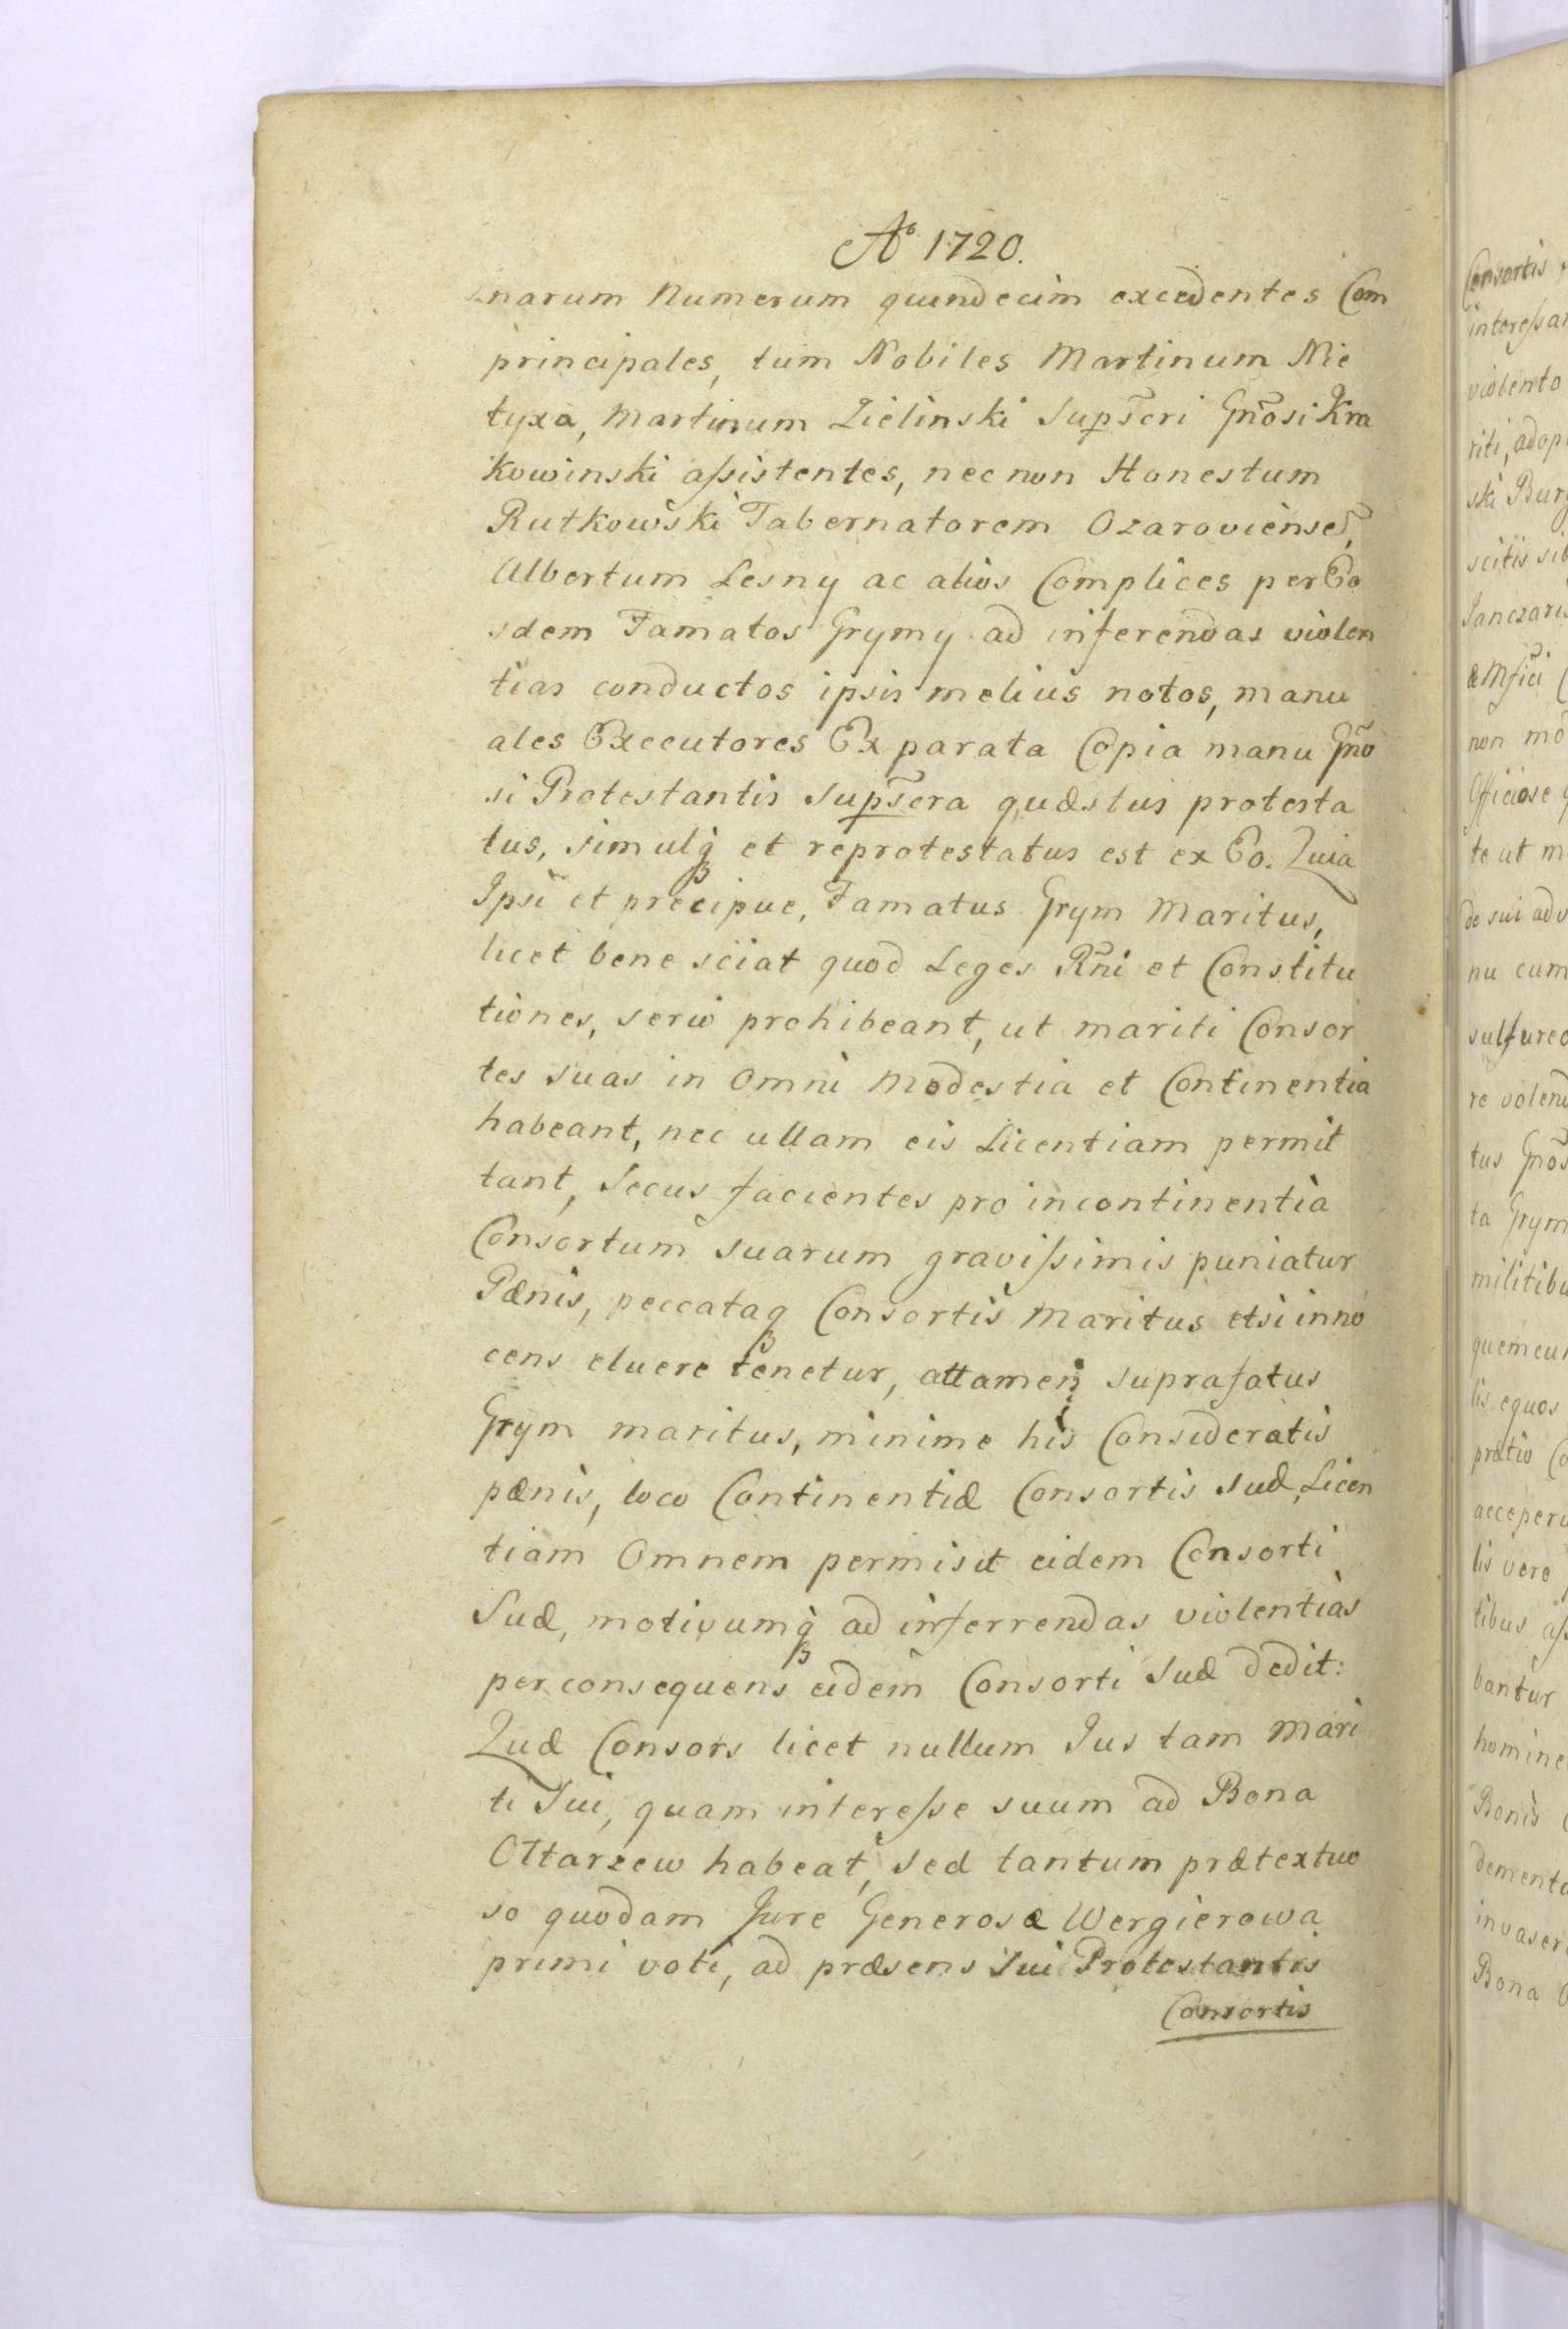 Aº 1720.
narum Numerum quindecim excedentes Com
principales, tum Nobiles Martinum Nie
tyxa, Martinum Zielinski Sups̃cri Gñosi Kra
kowinski assistentes, nec non Honestum
Rutkowski Tabernatorem Ozaroviense͠,
Albertum Lesny ac alios Complices per Eo
sdem Famatos Grymy ad inferendas violen
tias conductos ipsis melius notos, manu
ales Executores Ex parata Copia manu Gño
si Protestantis sups̃cra quæstus protesta
tus, simulq́ et reprotestatus est ex Eo. Quia
Ipsi et precipue, Famatus Grym Maritus,
licet bene sciat quod Leges Rñi et Constitu
tiones, serio prohibeant, ut mariti Consor
tes suas in Omni Modestia et Continentia
habeant, nec ullam eis Licentiam permit
tant, Secus facientes pro incontinentia
Consortum suarum gravissimis puniatur
Pænis, peccataq Consortis Maritus etsi inno
cens eluere tenetur, attamen suprafatus
Grym maritus, minime his Consideratis
pænis, loco Continentiæ Consortis suæ, Licen
tiam Omnem permisit eidem Consorti
Suæ, motivumq́ ad inferrendas violentias
per consequens eidem Consorti Suæ dedit:
Quæ Consors licet nullum Jus tam Mari
ti Sui, quam interesse suum ad Bona
Ottarzew habeat, sed tantum prætextuo
so quodam Jure Generosæ Wergierowa
primi voti, ad præsens Sui Protestantis
Consortis
Consortis
interessa
violento
riti, adop
ski Burg
scitis sib
Janczaris
non mo
Officiose
te ut m
de sui adv
nu cum
sulfureo
re volend
tus Gños
ta Grym
militibu
quemcun
lis equos
prætio Co
acceperu
lis vero
tibus ass
bantur
homine
Bonis
demento
invaser
Bona O